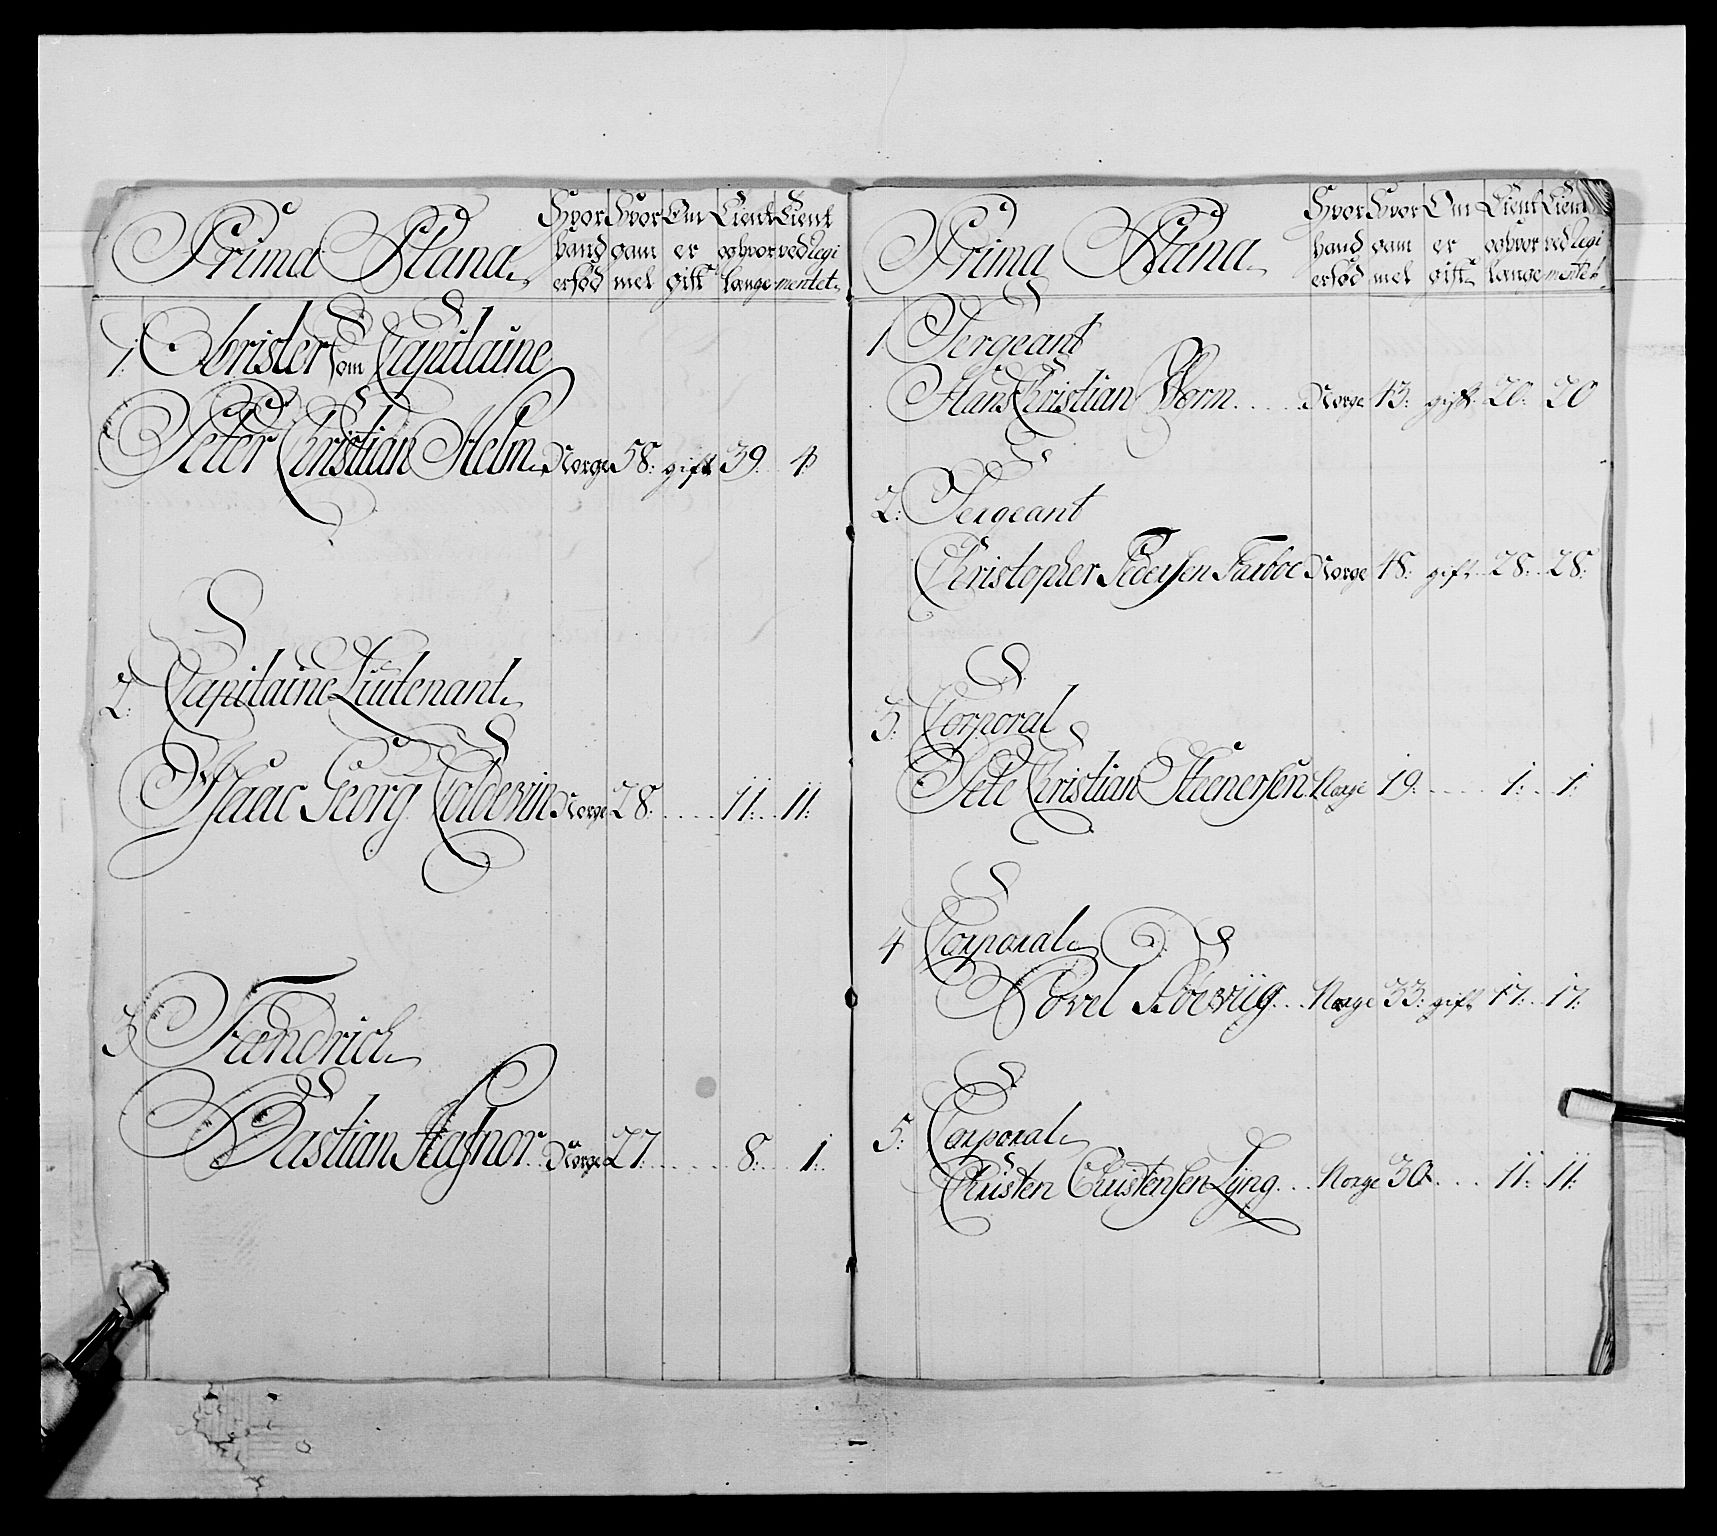 Prima Plana
Hvor hand er fød
Hvor gam mel
Om er gift
Tient og hvor længe
Tient ved Regi mentet.
1. Obrister som Capitaine
Peter Christian Helm Norge 58: gift 39. 4
2: Capitaine Lieutenant
Isaac Georg Coldevin Norge 28. 11: 11:
3 Fændrich
Bastian Norge 27. 8. 1.
Prima Plana
Hvor hand er fød
Hvor gam mel
Om er gift
Tient og hvor længe
Tient ved Regi mentet.
1 Sergeant
Hans Christian Worm Norge 43: gift 20: 20
2: Sergeant
Christopher Pedersen Norge 48: gift 28: 28:
3: Corporal
Pete Christian Steenersen Norge 19: 1: 1:
4 Corporal
Povel Norge 33: gift 17: 17:
5: Corporal
Christen Christensen Lÿng Norge 30 11: 11: